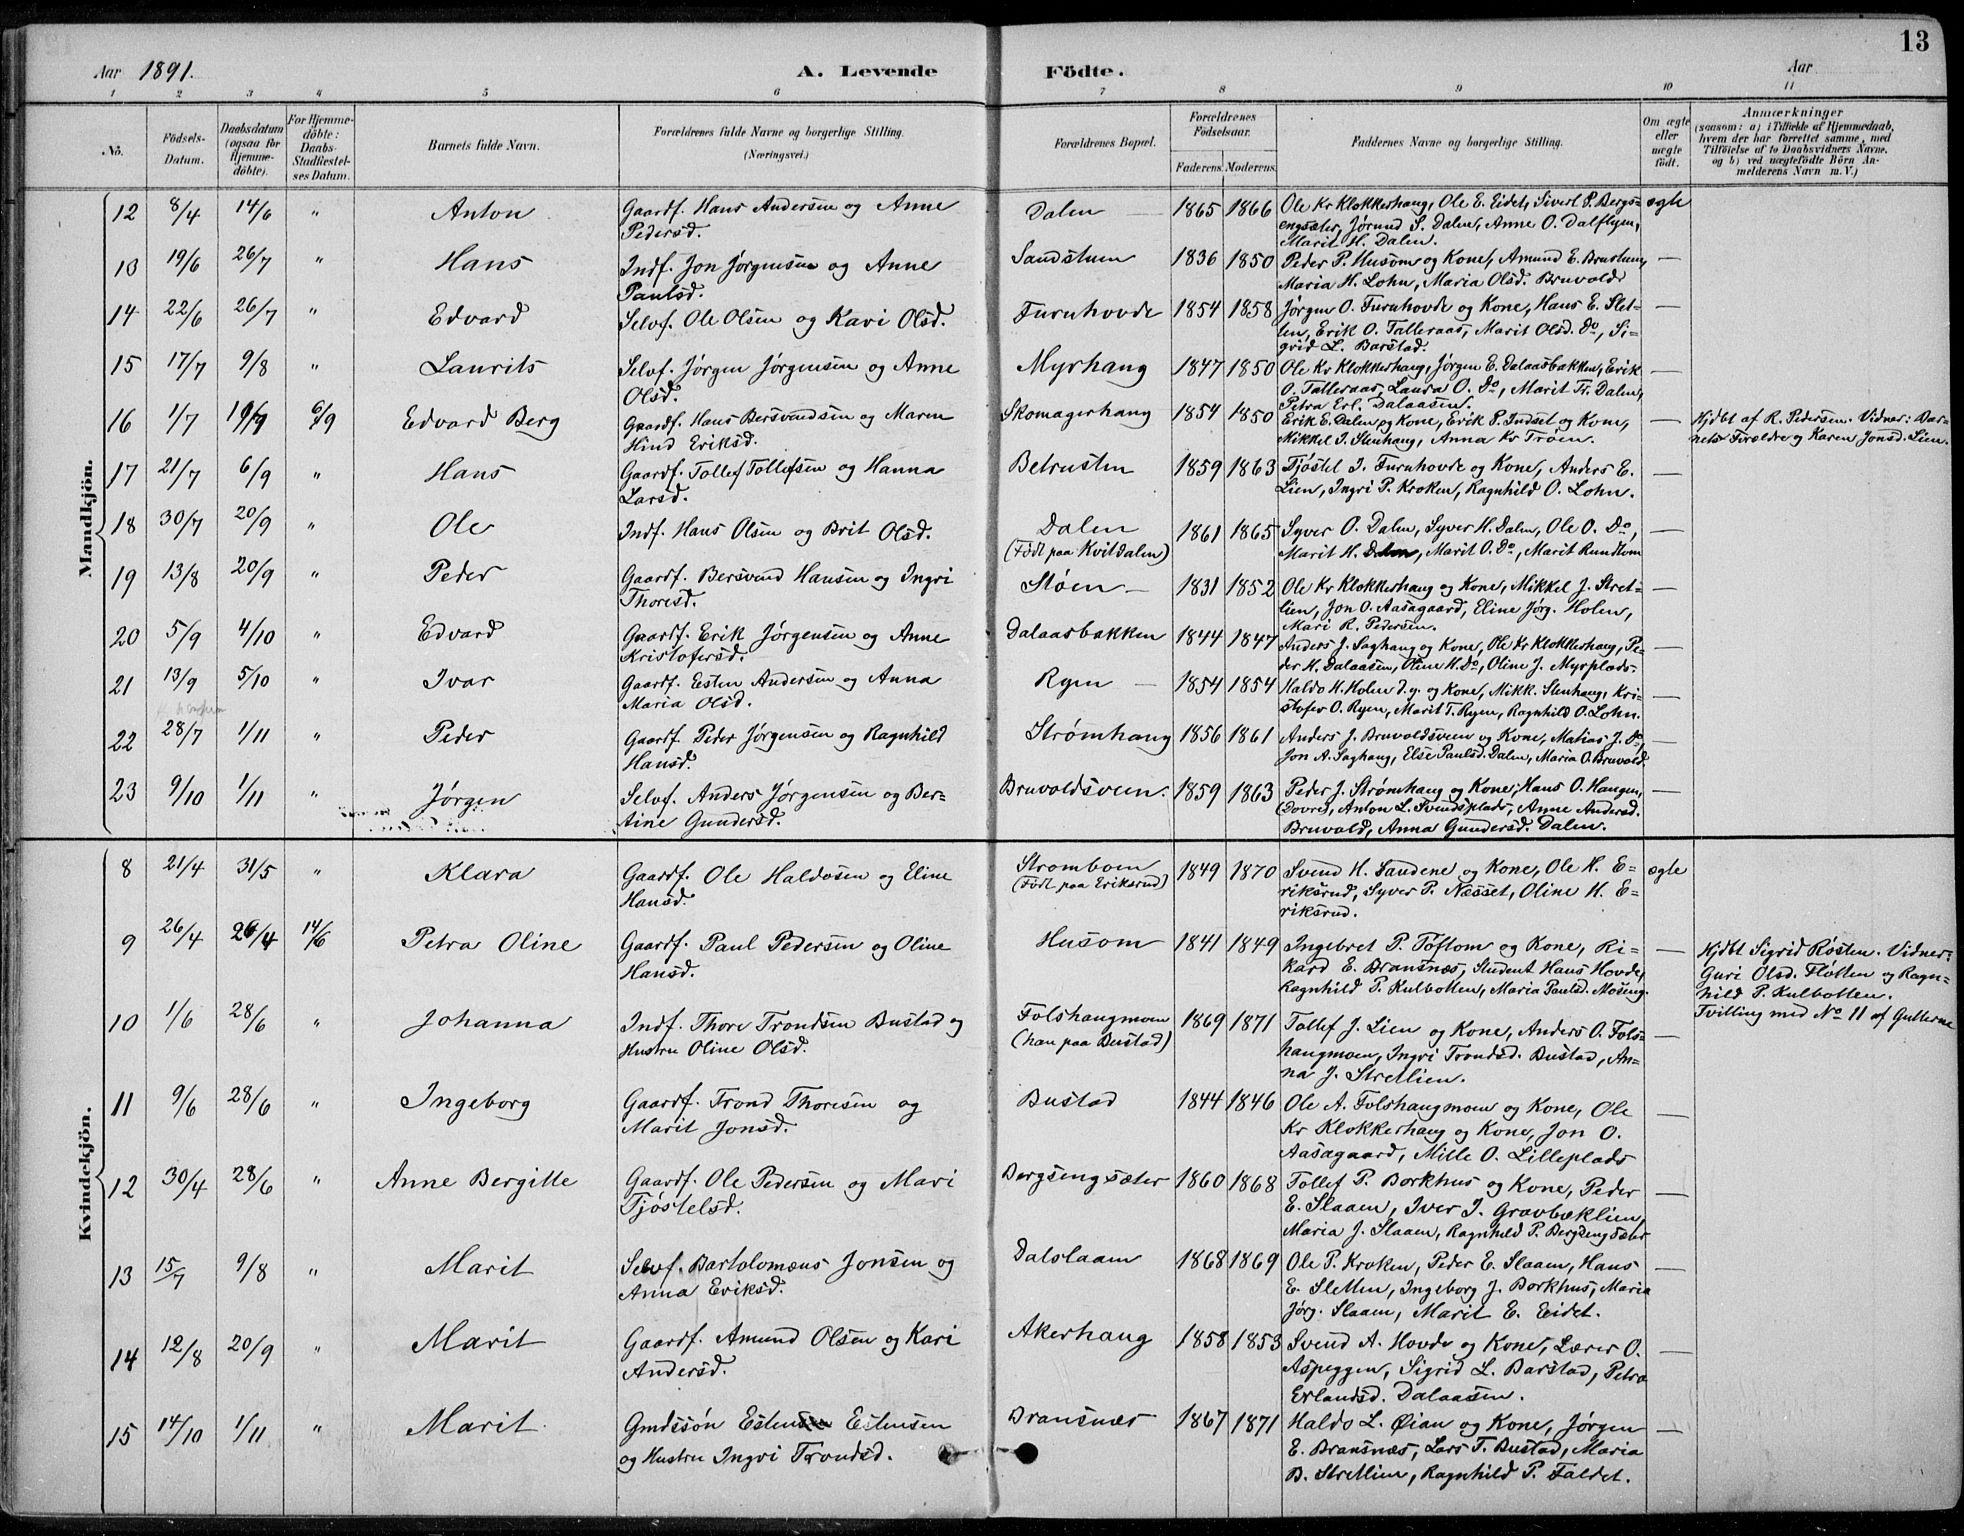 13
Aar 1891. A. Levende Födte. Aar
1 2 3 4 5 6 7 8 9 10 11
No. Födsels-Datum. Daabsdatum (ogsaa for Hjemme-döbte). For Hjemme-döbte: Daabs-Stadfæstel-ses Datum. Barnets fulde Navn. Forældrenes fulde Navne og borgerlige Stilling. (Næringsvei.) Forældrenes Bopæl. Forældrenes Födselsaar. Faderens. Moderens. Faddernes Navne og borgerlige Stilling. Om ægte eller uægte födt. Anmærkninger (saasom: a) i Tilfælde af Hjemmedaab, hvem der har forrettet samme, med Tilföielse af to Daabsvidners Navne, og b) ved uægtefödte Börn An-melderens Navn m. V.)
Mandkjön.
12 8/4 14/6 " Anton Gaardf. Hans Andersen og Anne Dalen 1865 1866 Ole Kr Klokkerhaug, Ole E. Eidet, Sivert P. Bergs= ægte
Pedersd. engsæter, Jørund S. Dalen, Anne O. Dalflyen,
Marit H. Dalen.
13 19/6 26/7 " Hans Indf. Jon Jørgensen og Anne Sandstuen 1836 1850 Peder P. Husom og Kone, Amund E. Brustuen, —
Paulsd. Maria H. Lohn, Maria Olsd. Bruvold
14 22/6 26/7 " Edvard Selvf. Ole Olsen og Kari Olsd. Furuhovde 1854 1858 Jørgen O. Furuhovde og Kone, Hans E. Slet= —
ten, Erik O. Talleraas, Marit Olsd. Do, Si=
grid L. Barstad.
15 17/7 9/8 " Laurits Selvf. Jørgen Jørgensen og Anne Myrhaug 1847 1850 Ole Kr Klokkerhaug, Jørgen E. Dalaasbakken, Erik —
Olsd. O. Talleraas, Laura O. Do, Marit Tr. Dalen,
Petra Erl. Dalaasen.
16 1/7 6/9 Edvard Berg Gaardf. Hans Bersvendsen og Maren Skomagerhaug 1854 1850 Erik E. Dalen og Kone, Erik P. Indset og Kone, — Hjdbt af R. Pedersen. Vidner: Bar=
Hind Eriksd. Mikkel I. Stenhaug, Anna Kr Trøen. nets Forældre og Karen Jonsd. Lien.
17 21/7 6/9 " Hans Gaardf. Tollef Tollefsen og Hanna Betrusten 1859 1863 Tjøstel I. Furuhovde og Kone, Anders E. —
Larsd. Lien, Ingri P. Kroken, Ragnhild O. Lohn.
18 30/7 20/9 " Ole Indf. Hans Olsen og Brit Olsd. Dalen 1861 1865 Syver O. Dalen, Syver H. Dalen, Ole O. Do, —
(Født paa Kvitdalen) Marit H. Dalen, Marit O. Do, Marit Rundtom
19 13/8 20/9 " Peder Gaardf. Bersvend Hansen og Ingri Støen — 1831 1852 Ole Kr Klokkerhaug og Kone, Mikkel J. Stret= —
Thoresd. lien, Jon O. Aasagaard, Eline Jørg. Holen,
Mari R. Pedersen.
20 5/9 4/10 " Edvard Gaardf. Erik Jørgensen og Anne Dalaasbakken 1844 1847 Anders J. Saghaug og Kone, Ole Kr Klokkerhaug, Pe= —
Kristofersd. der H. Dalaasen, Oline H. Do, Oline J. Myrplads.
21 13/9 5/10 " Ivar Gaardf. Esten Andersen og Anna Ryen — 1854 1854 Haldo H. Holen d. y. og Kone, Mikk. Stenhaug, Kri= —
Maria Olsd. stofer O. Ryen, Marit T. Ryen, Ragnhild O. Lohn.
22 28/7 1/11 " Peder Gaardf. Peder Jørgensen og Ragnhild Strømhaug 1856 1861 Anders J. Bruvoldsveen og Kone, Matias J. Do, —
Hansd. Jon A. Saghaug, Else Paulsd. Dalen, Maria O. Bruvold.
23 9/10 1/11 " Jørgen Selvf. Anders Jørgensen og Ber= Bruvoldsveen. 1859 1863 Peder J. Strømhaug og Kone, Hans O. Haugen, —
tine Gundersd. (Dovre), Anton L. Svendsplads, Anne Andersd.
Bruvold, Anna Gundersd. Dalen.
Kvindekjön.
8 21/4 31/5 " Klara Gaardf. Ole Haldosen og Eline Stromboen 1849 1870 Svend H. Sandene og Kone, Ole H. E= ægte
Hansd. (Født paa Eriksrud) riksrud, Syver P. Næsset, Oline H. E=
riksrud.
9 26/4 26/4 14/6 Petra Oline Gaardf. Paul Pedersen og Oline Husom 1841 1849 Ingebret P. Toftom og Kone, Ri= — Hjdbt Sigrid Røsten. Vidner:
Hansd. kard E. Bransnæs, Student Hans Hovde, Guri Olsd. Fløtten og Ragn=
Ragnhild P. Kulbotten, Maria Paulsd. Moseng. hild P. Kulbotten.
Tvilling med No 11 af Gutterne
10 1/6 28/6 " Johanna Indf. Thore Trondsen Bustad og Folshaugmoen 1869 1871 Tollef J. Lien og Kone, Anders O. Fols= —
Hustru Oline Olsd. (han paa Bustad) haugmoen, Ingri Trondsd. Bustad, An=
na J. Stretlien.
11 9/6 28/6 " Ingeborg Gaardf. Trond Thoresen og Bustad 1844 1846 Ole A. Folshaugmoen og Kone, Ole —
Marit Jonsd. Kr Klokkerhaug og Kone, Jon O.
Aasagaard, Mille O. Lilleplads
12 30/4 28/6 " Anne Bergitte Gaardf. Ole Pedersen og Mari Bergsengsæter 1860 1868 Tollef P. Borkhus og Kone, Peder —
Tjøstelsd. E. Slaaen, Iver I. Gravbæklien,
Maria J. Slaaen, Ragnhild P. Bergsengsæter
13 15/7 9/8 " Marit Selvf. Bartolomæus Jonsen og Dalslaaen 1868 1869 Ole P. Kroken, Peder E. Slaaen, Hans —
Anna Eriksd. E. Sletten, Ingeborg J. Borkhus, Maria
Jørg. Slaaen, Marit E. Eidet.
14 12/8 20/9 " Marit Gaardf. Amund Olsen og Kari Akerhaug 1858 1853 Svend A. Hovde og Kone, Lærer O. —
Andersd. Aspeggen, Sigrid L. Barstad, Petra
Erlandsd. Dalaasen.
15 14/10 1/11 " Marit Gmdssøn Esten Estensen Bransnæs 1867 1871 Haldo L. Øian og Kone, Jørgen —
og Hustru Ingri Trondsd. E. Bransnæs, Lars T. Bustad, Maria
B. Stretlien, Ragnhild P. Faldet.